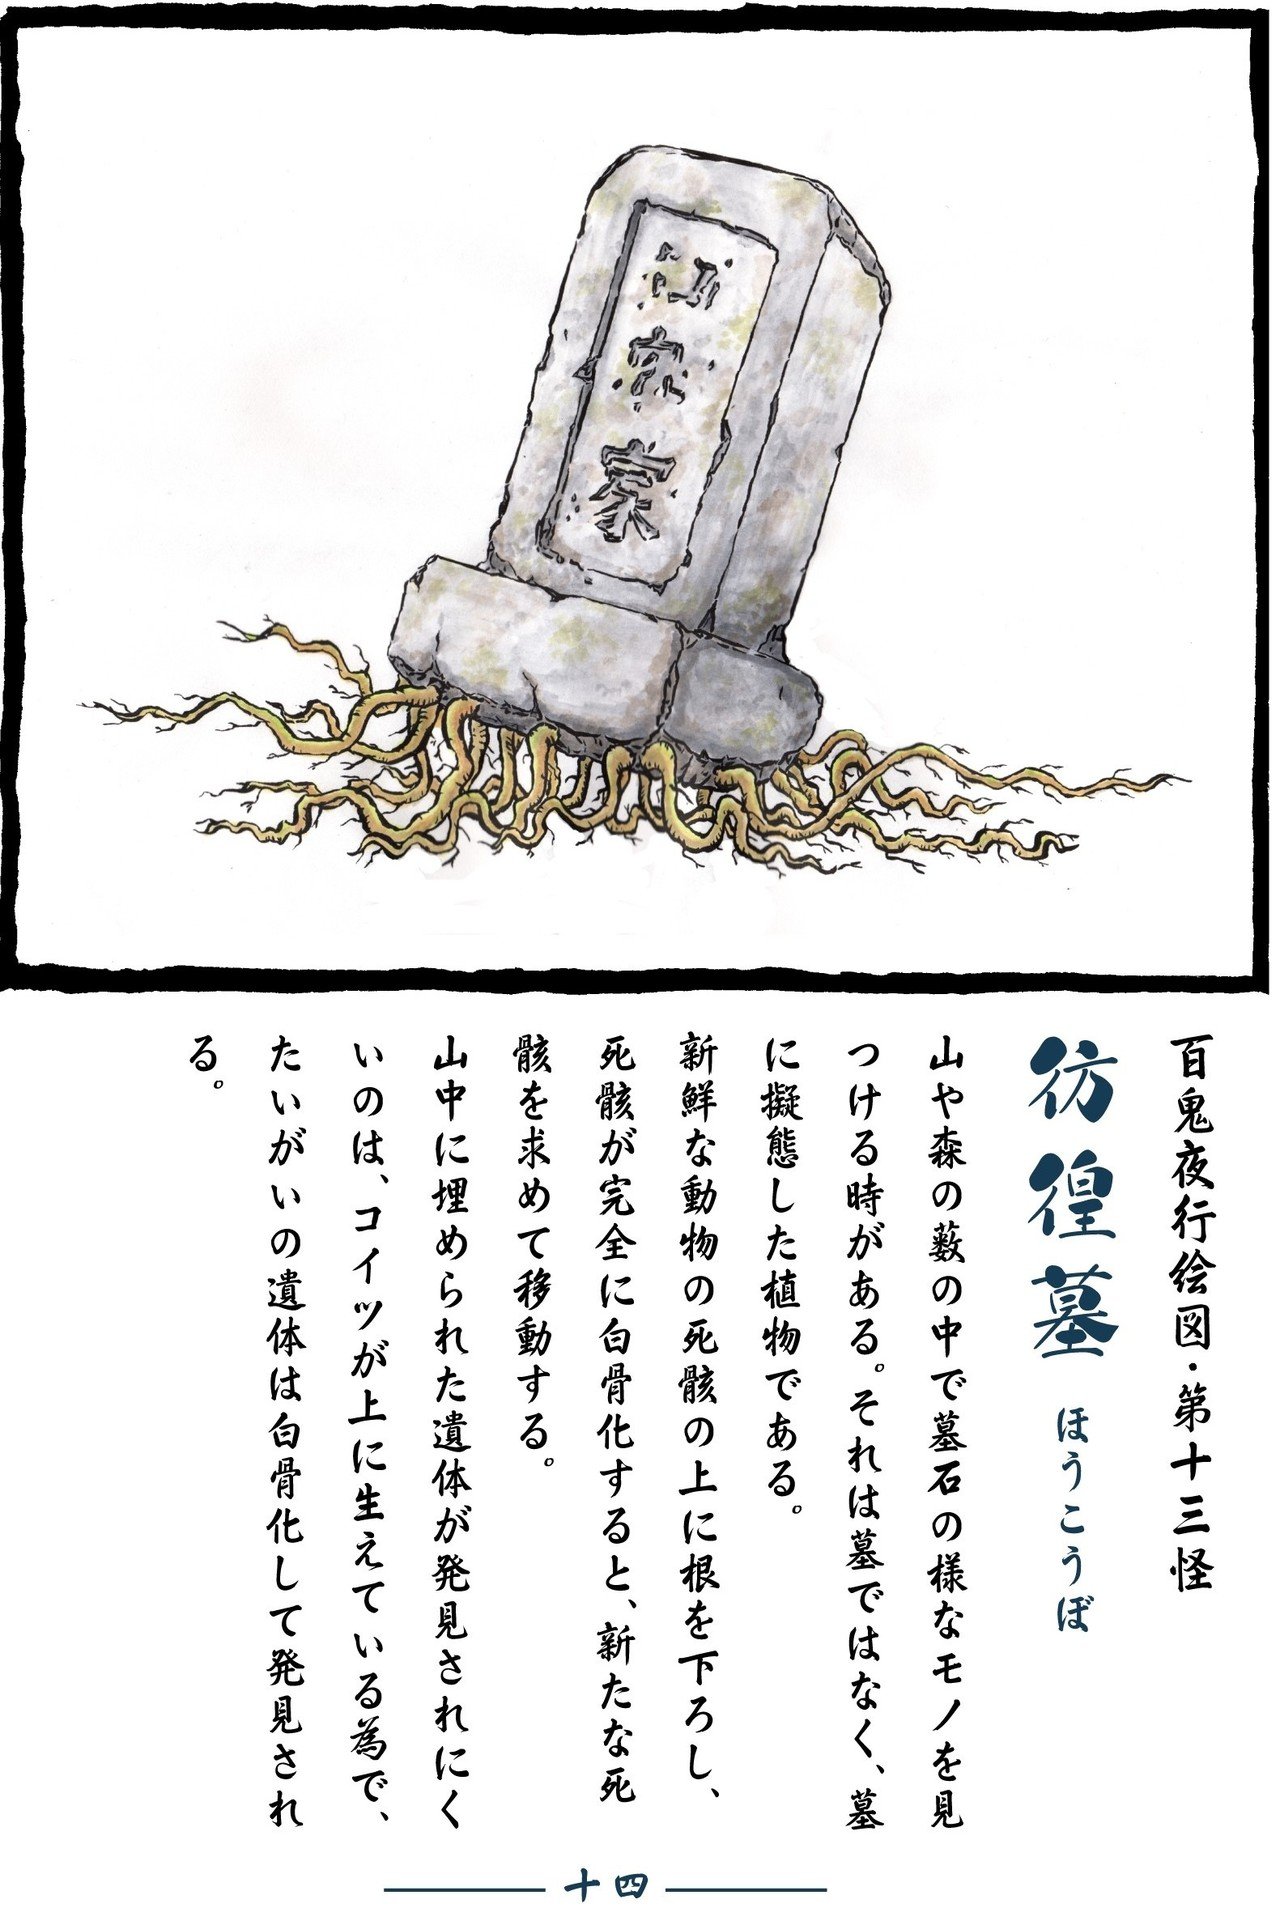 百鬼夜行絵図・第十三怪
彷徨墓 ほうこうぼ
山や森の薮の中で墓石の様なモノを見
つける時がある。それは墓ではなく、墓
に擬態した植物である。
新鮮な動物の死骸の上に根を下ろし、
死骸が完全に白骨化すると、新たな死
骸を求めて移動する。
山中に埋められた遺体が発見されにく
いのは、コイツが上に生えている為で、
たいがいの遺体は白骨化して発見され
る。
十四